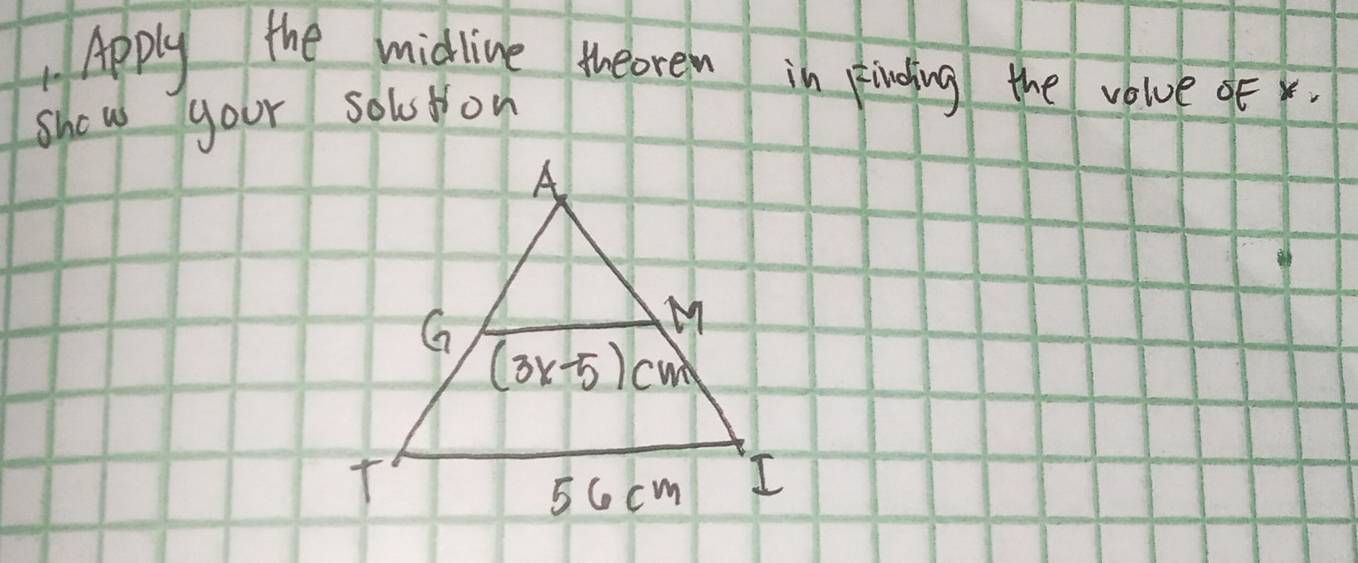 1. Apply the midline theorem in Finding the value of x.
Show your solution
A
G M
(3x-5)cm
T I
56cm